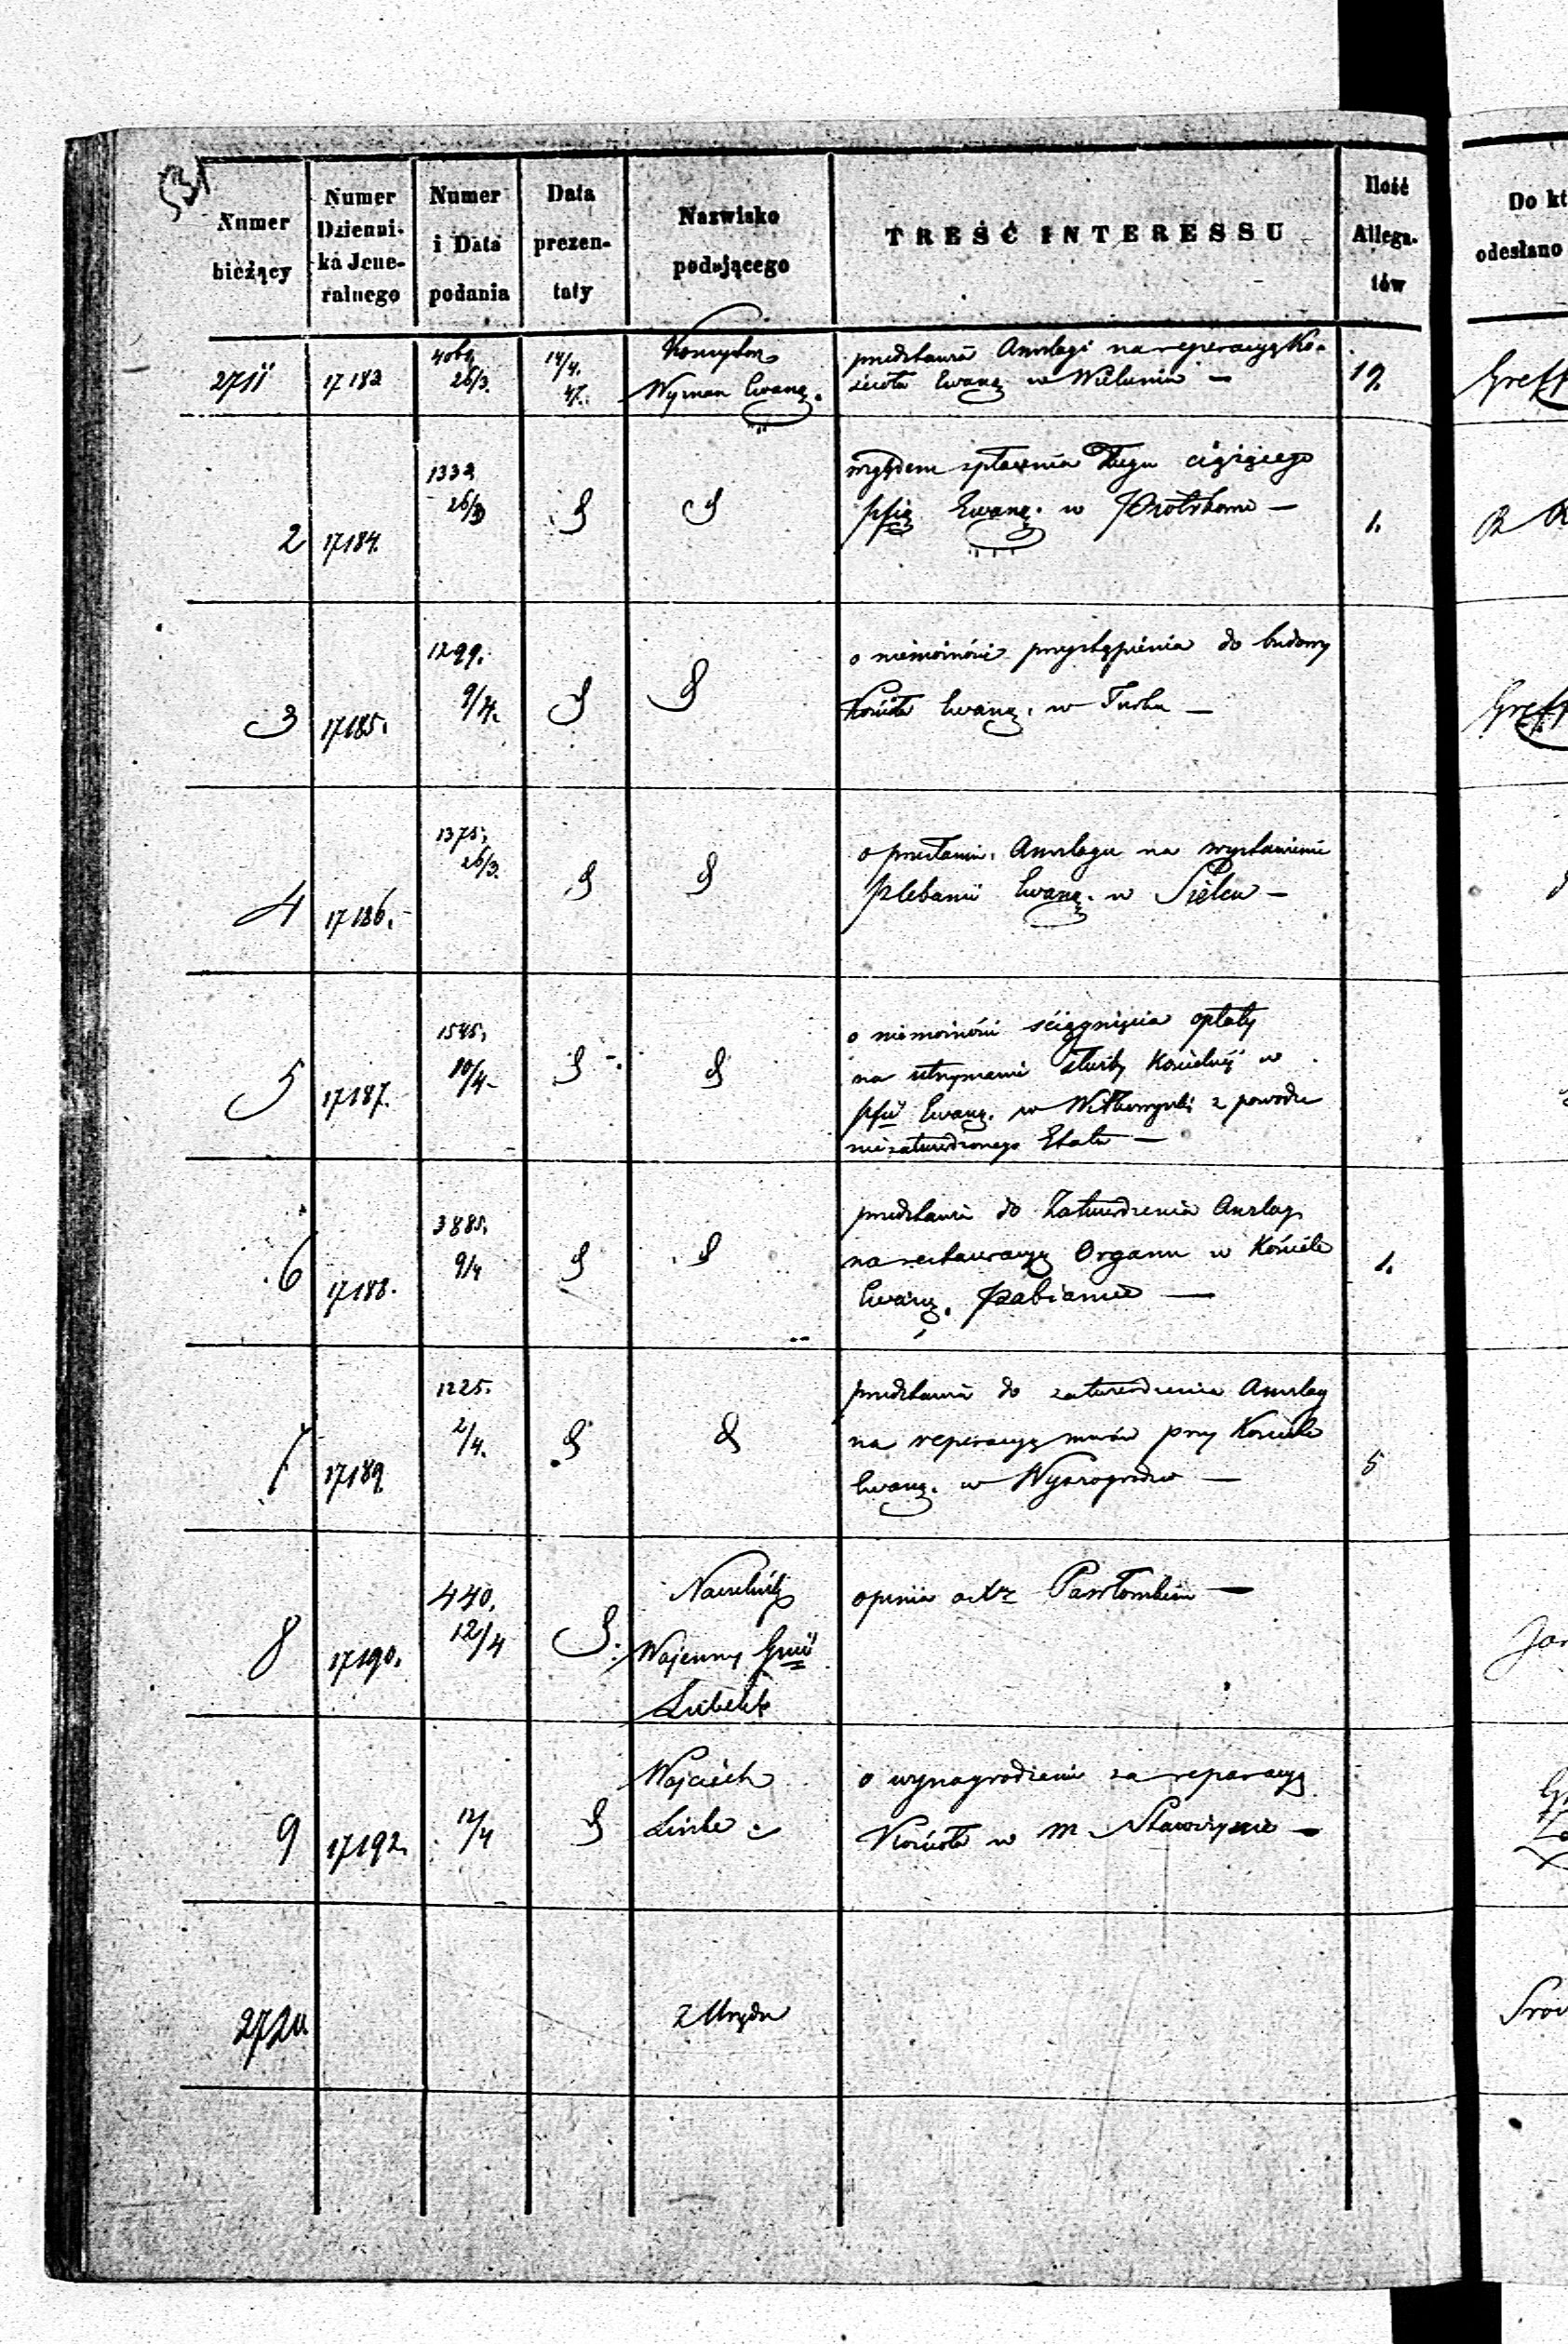 531
Numer bieżący
Numer Dzienni-ka Jene-ralnego
Numer i Data podania
Data prezen-taty
Nazwisko podającego
TREŚĆ INTERESSU
Ilość Allega-tów
Do kt
odesłano
2711 17183 26/3. 14/4. 47. Konsystorz
Wyznan Ewang.
przedstawia Anszlagi na reperacyą Ko-
ścioła Ewang. w Wieluniu — 19. Greff
2 17184. 1332 26/3
względem spłacenia długu ciążącego
pfią Ewang. w Piotrkowie — 1.
3 17185. 1299. 9/4.
o niemożności przystąpienia do budowy
Kościoła Ewang. w Turku — Greff
4 17186. 1375. 26/3.
o przesłanie Anszlagu na wystawienie
plebanii Ewang. w Sielcu —
5 17187. 1545. 10/4.
o niemożności ściągnięcia opłaty
na utrzymanie służby Kościelnéj w
pfii Ewang. w z powodu
niezatwierdzonego Etatu —
6 17188. 3885. 9/4
przedstawia do Zatwierdzenia Anszlag
na restauracyą Organu w Kościele
Ewang. Pabianice — 1.
7 17189 1225. 2/4.
przedstawia do zatwierdzenia Anszlag
na reperacyą murów przy Kościele
Ewang. w Wyszogrodzie — 5
8 17190. 440. 12/4 Naczelnik
Wojenny Gunii
Lubelsk
opinia o Xdz
9 17192. 12/4 Wojciech
Linke
o wynagrodzenie za reparacyą
Kościoła w m. Stawiszynie —
2720 z Urzędu